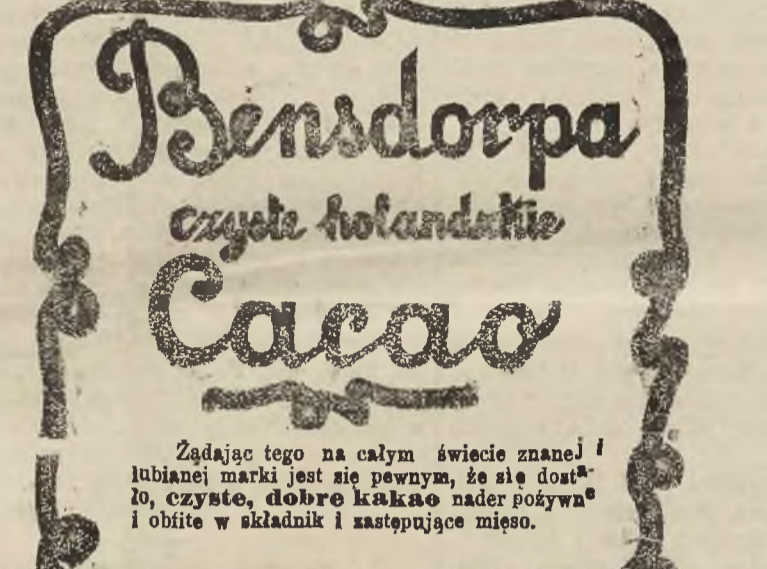 Bensdorpa
czyste holandskie
Cacao
Żądając tego na całym świecie znanej i
lubianej marki jest się pewnym, że się dosta-
ło, czyste, dobre kakao nader pożywne
i obfite w składnik i zastępujące mięso.